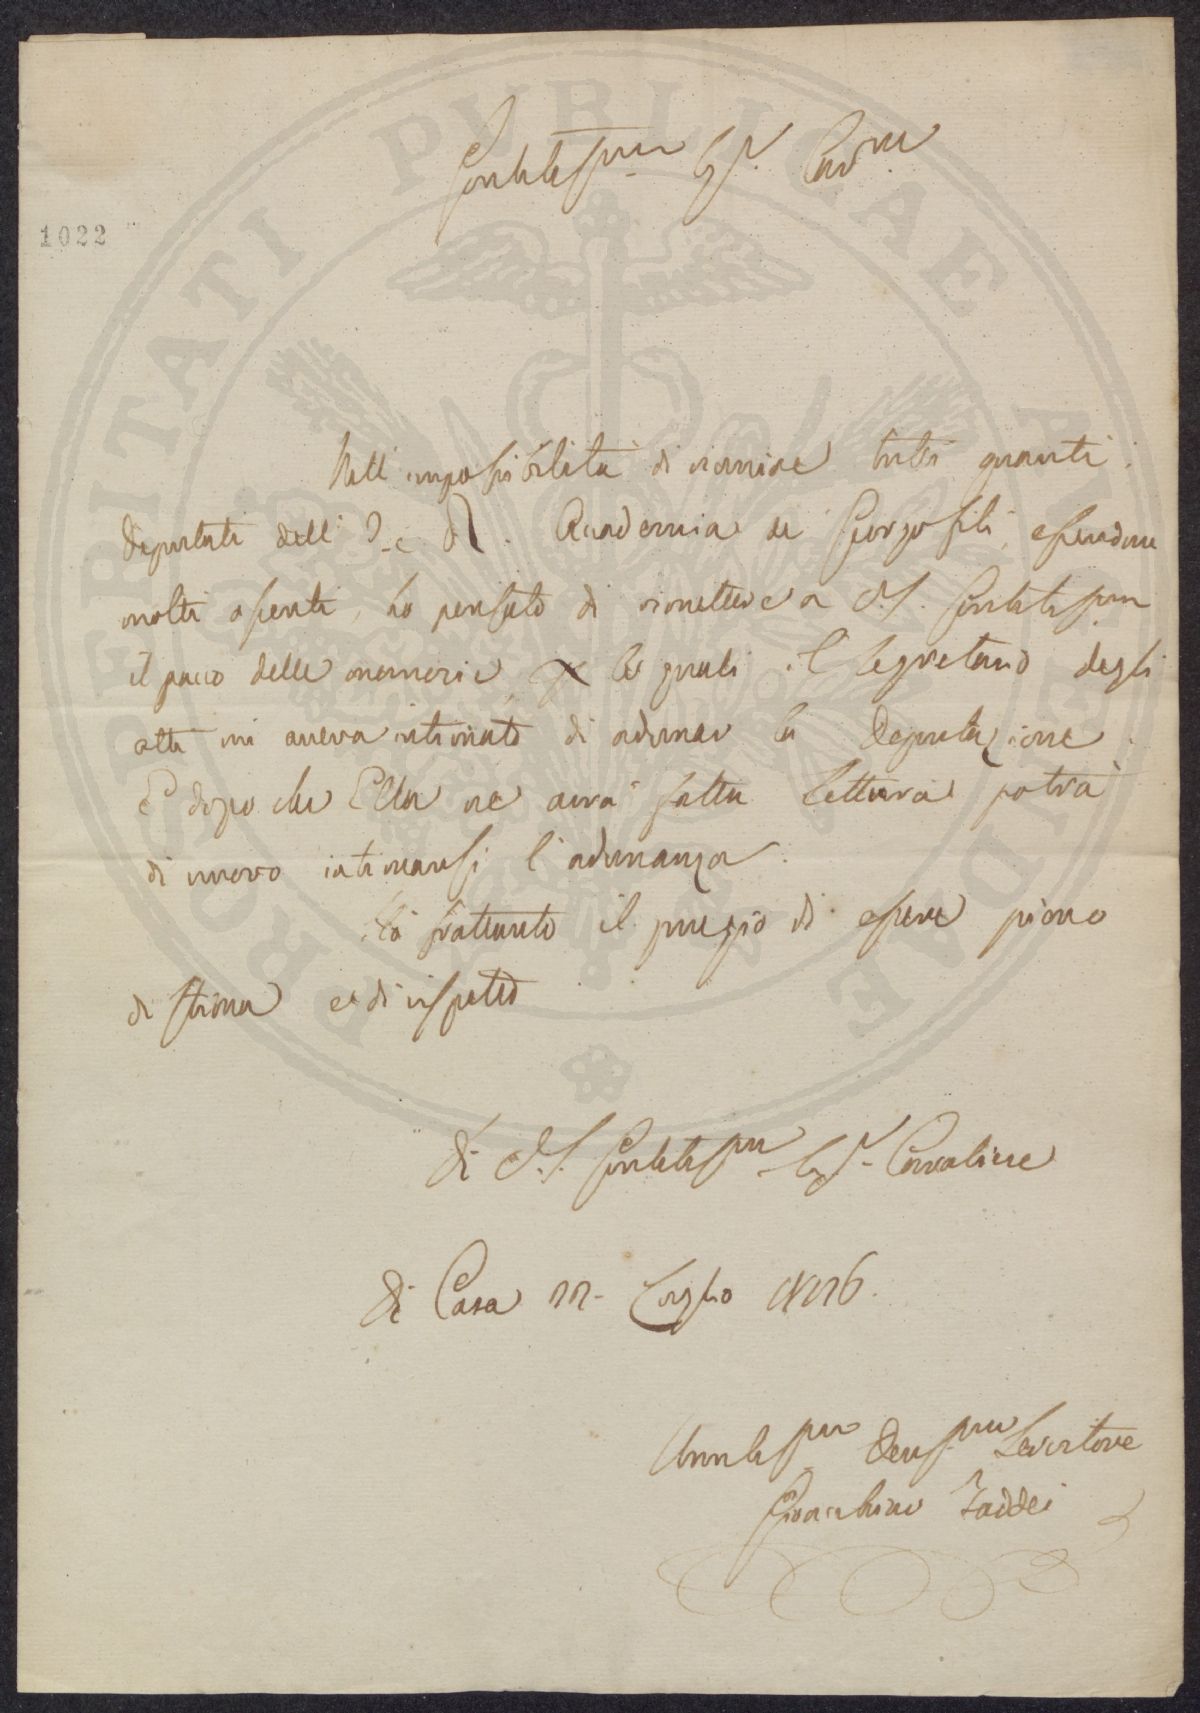 Gentilissmo Sigr. Cavre.
1022
Nell impossibilità di riunire tutti quanti i
deputati dell' I. e R. Accademia de Georgofili, essendone
molti assenti, ho pensato di rimettere a V.S. Gentilissma
il pacco delle memorie, per le quali il Segretario degli
atti mi aveva intimato di adunar la Deputazione.
E dopo che Ella ne avrà fatta lettura potrà
di nuovo intimarsi l'adunanza.
Ho frattanto il pregio di essere pieno
di stima e di rispetto
Di V.S. Gentilissma Sigr. Cavaliere
Di Casa 22 Luglio 1826.
Umilissmo Devmo Servitore
Gioacchino Taddei
PROSPERITATI PVBLICAE AVGENDAE